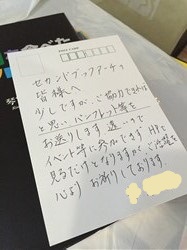 セカンドブックアーチの
皆様へ
少しですが、ご協力できれば
と思いパンフレット等を
お送りします
イベント等に参加できず HPを
見るだけとなりますが、ご活躍を
心より お祈りしております